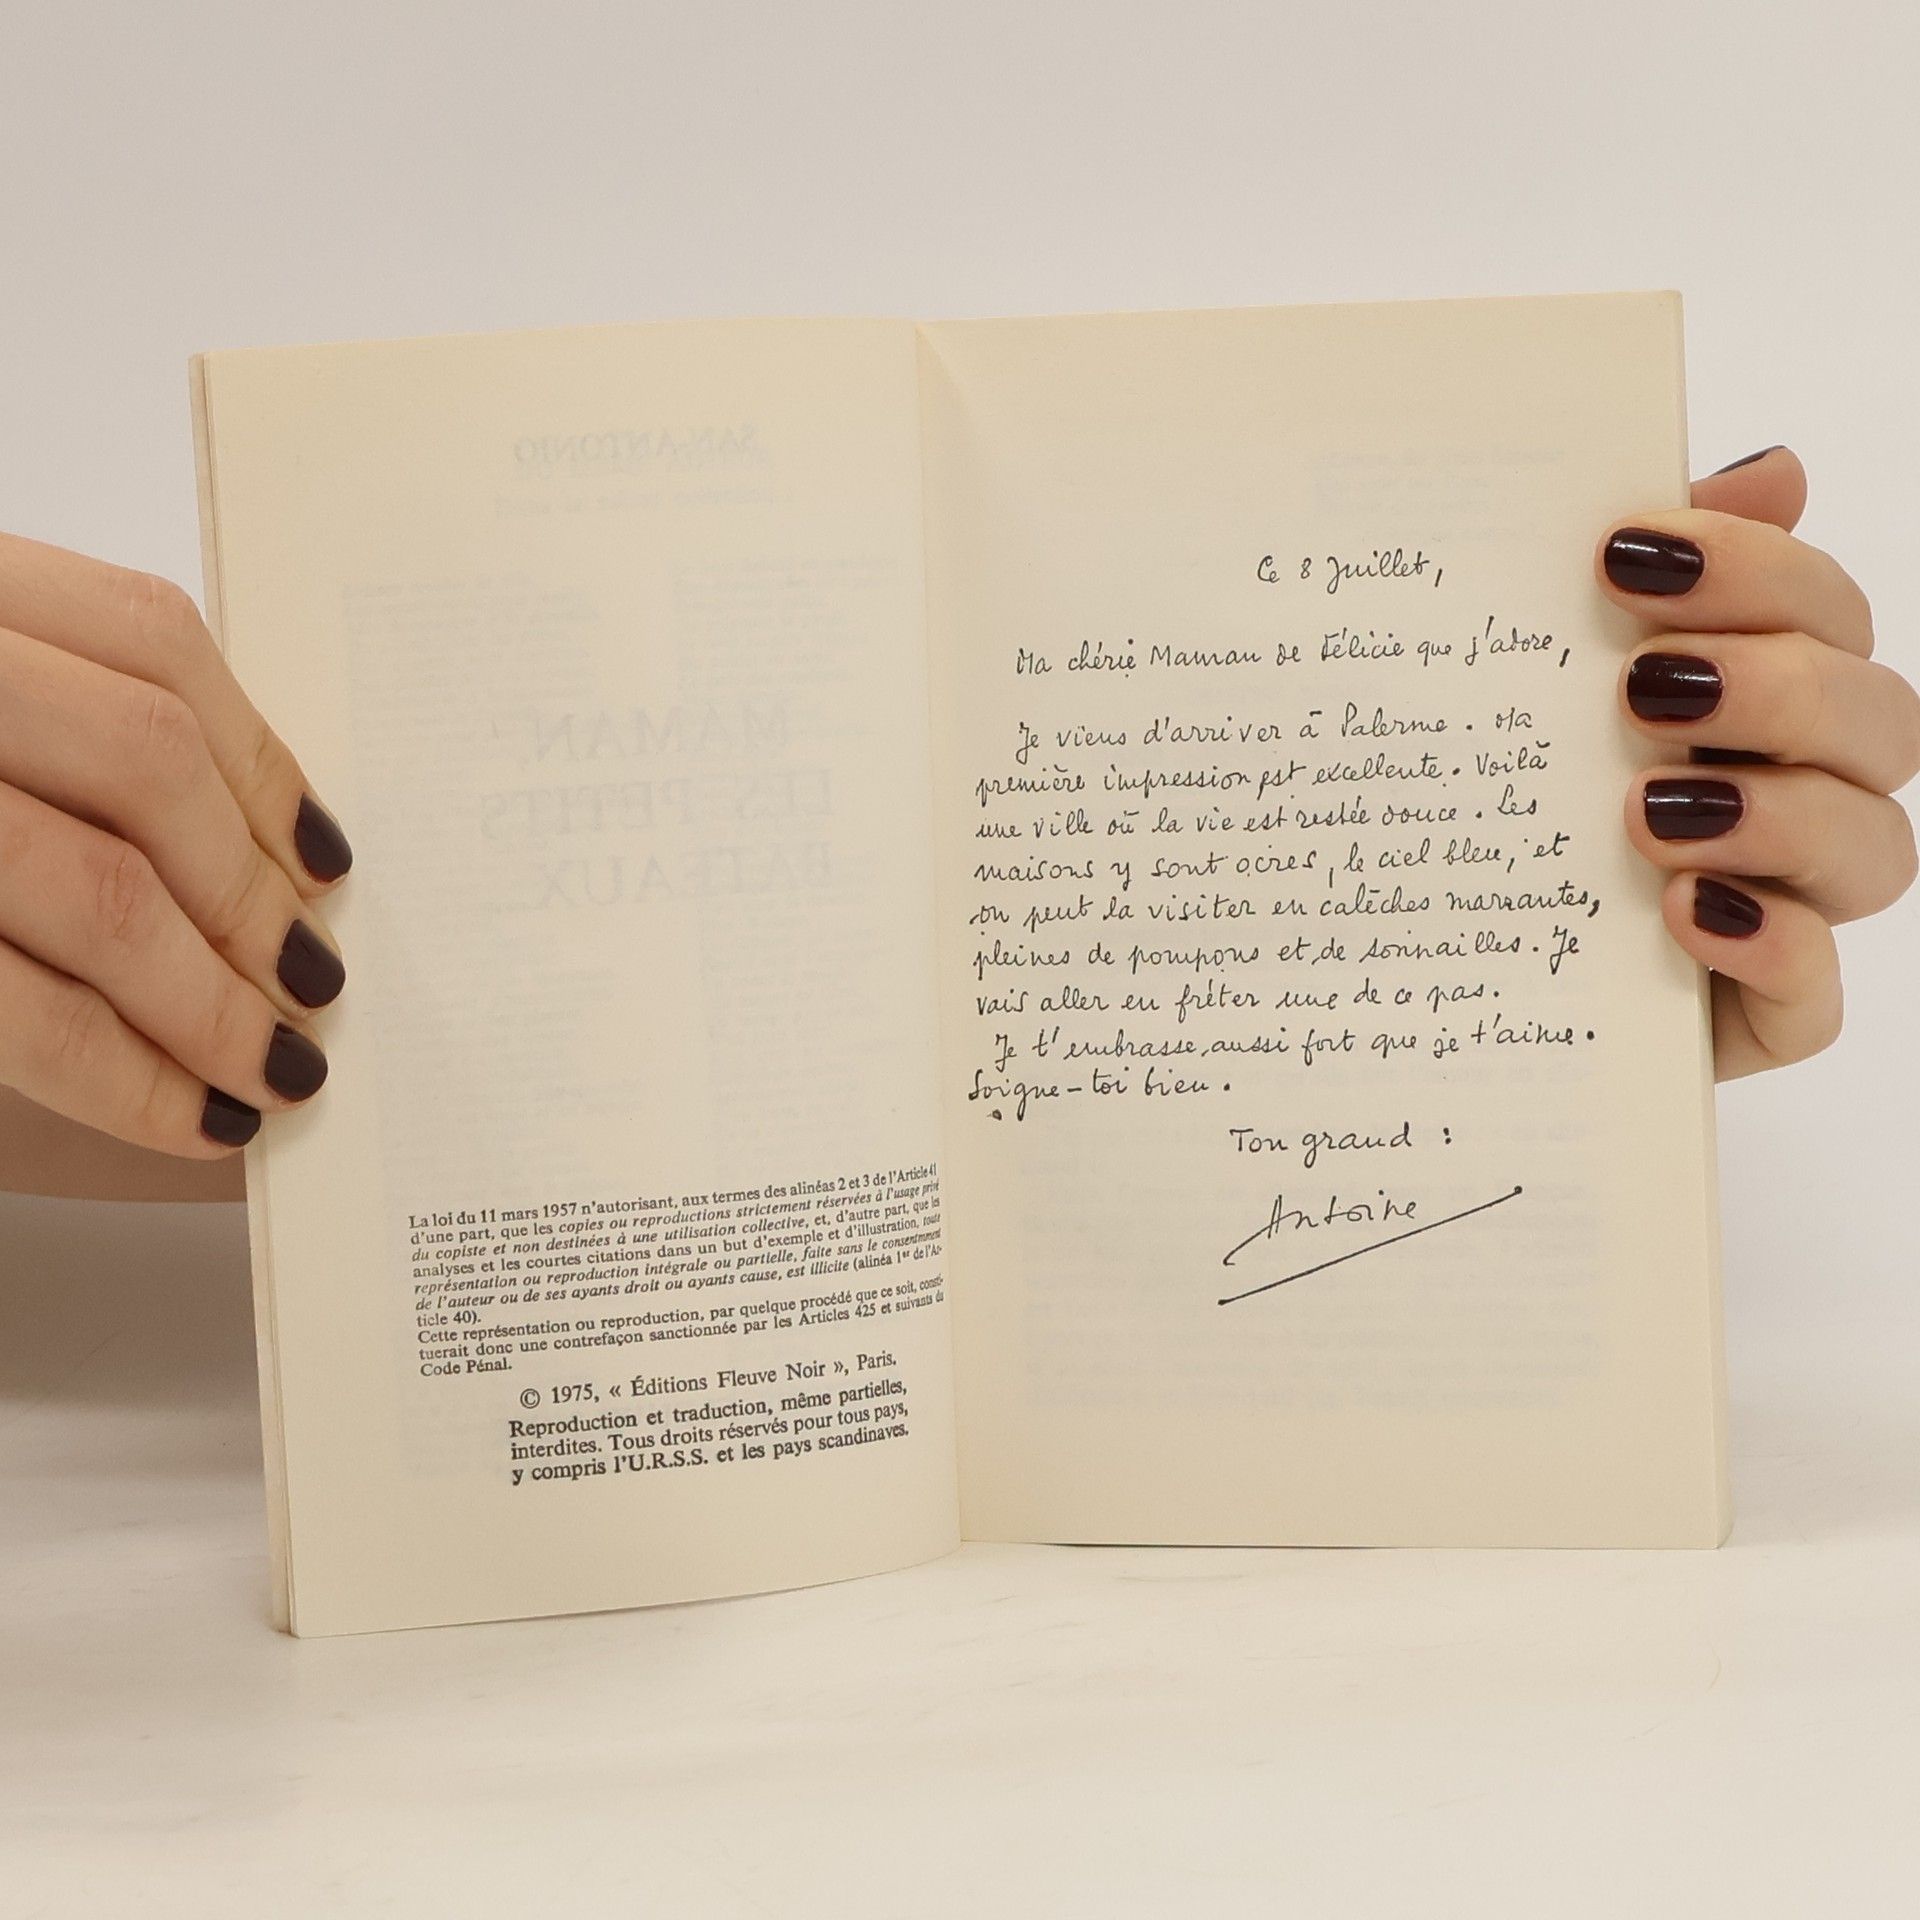 La loi du 11 mars 1957 n'autorisant, aux termes des alinéas 2 et 3 de l'Article 41
d'une part, que les copies ou reproductions strictement réservées à l'usage privé
du copiste et non destinées à une utilisation collective, et, d'autre part, que les
analyses et les courtes citations dans un but d'exemple et d'illustration, toute
représentation ou reproduction intégrale ou partielle, faite sans le consentement
de l'auteur ou de ses ayants droit ou ayants cause, est illicite (alinéa 1er de l'Ar-
ticle 40).
Cette représentation ou reproduction, par quelque procédé que ce soit, consti-
tuerait donc une contrefaçon sanctionnée par les Articles 425 et suivants du
Code Pénal.
© 1975, « Éditions Fleuve Noir », Paris.
Reproduction et traduction, même partielles,
interdites. Tous droits réservés pour tous pays,
y compris l'U.R.S.S. et les pays scandinaves.
Ce 8 Juillet,
Ma chérie Maman de Félicie que j'adore,
Je viens d'arriver à Palerme. Ma
première impression est excellente. Voilà
une ville où la vie est restée douce. Les
maisons y sont ocres, le ciel bleu, et
on peut la visiter en calèches marrantes,
pleines de pompons et de sonnailles. Je
vais aller en fréter une de ce pas.
Je t'embrasse aussi fort que je t'aime.
Soigne-toi bien.
Ton grand :
Antoine